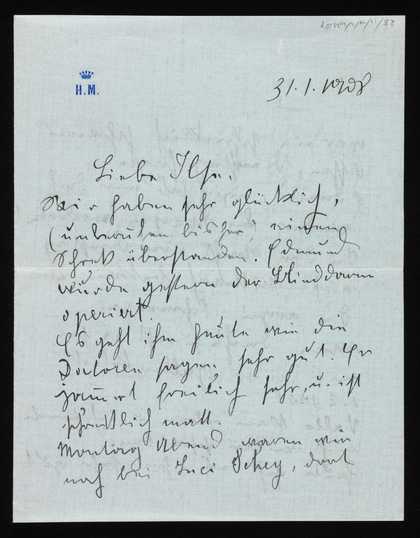 H.M.
31.1.1908
Liebe Ilse.
Wir haben sehr glücklich,
(unberufen bisher) einen
Schreck überstanden. Edmund
wurde gestern der Blinddarm
operiert.
Es geht ihm heute wie die
Doctoren sagen sehr gut. Er
jammert freilich sehr, u. ist
matt.
Montag Abend waren wir
noch bei Inci Schey, dort